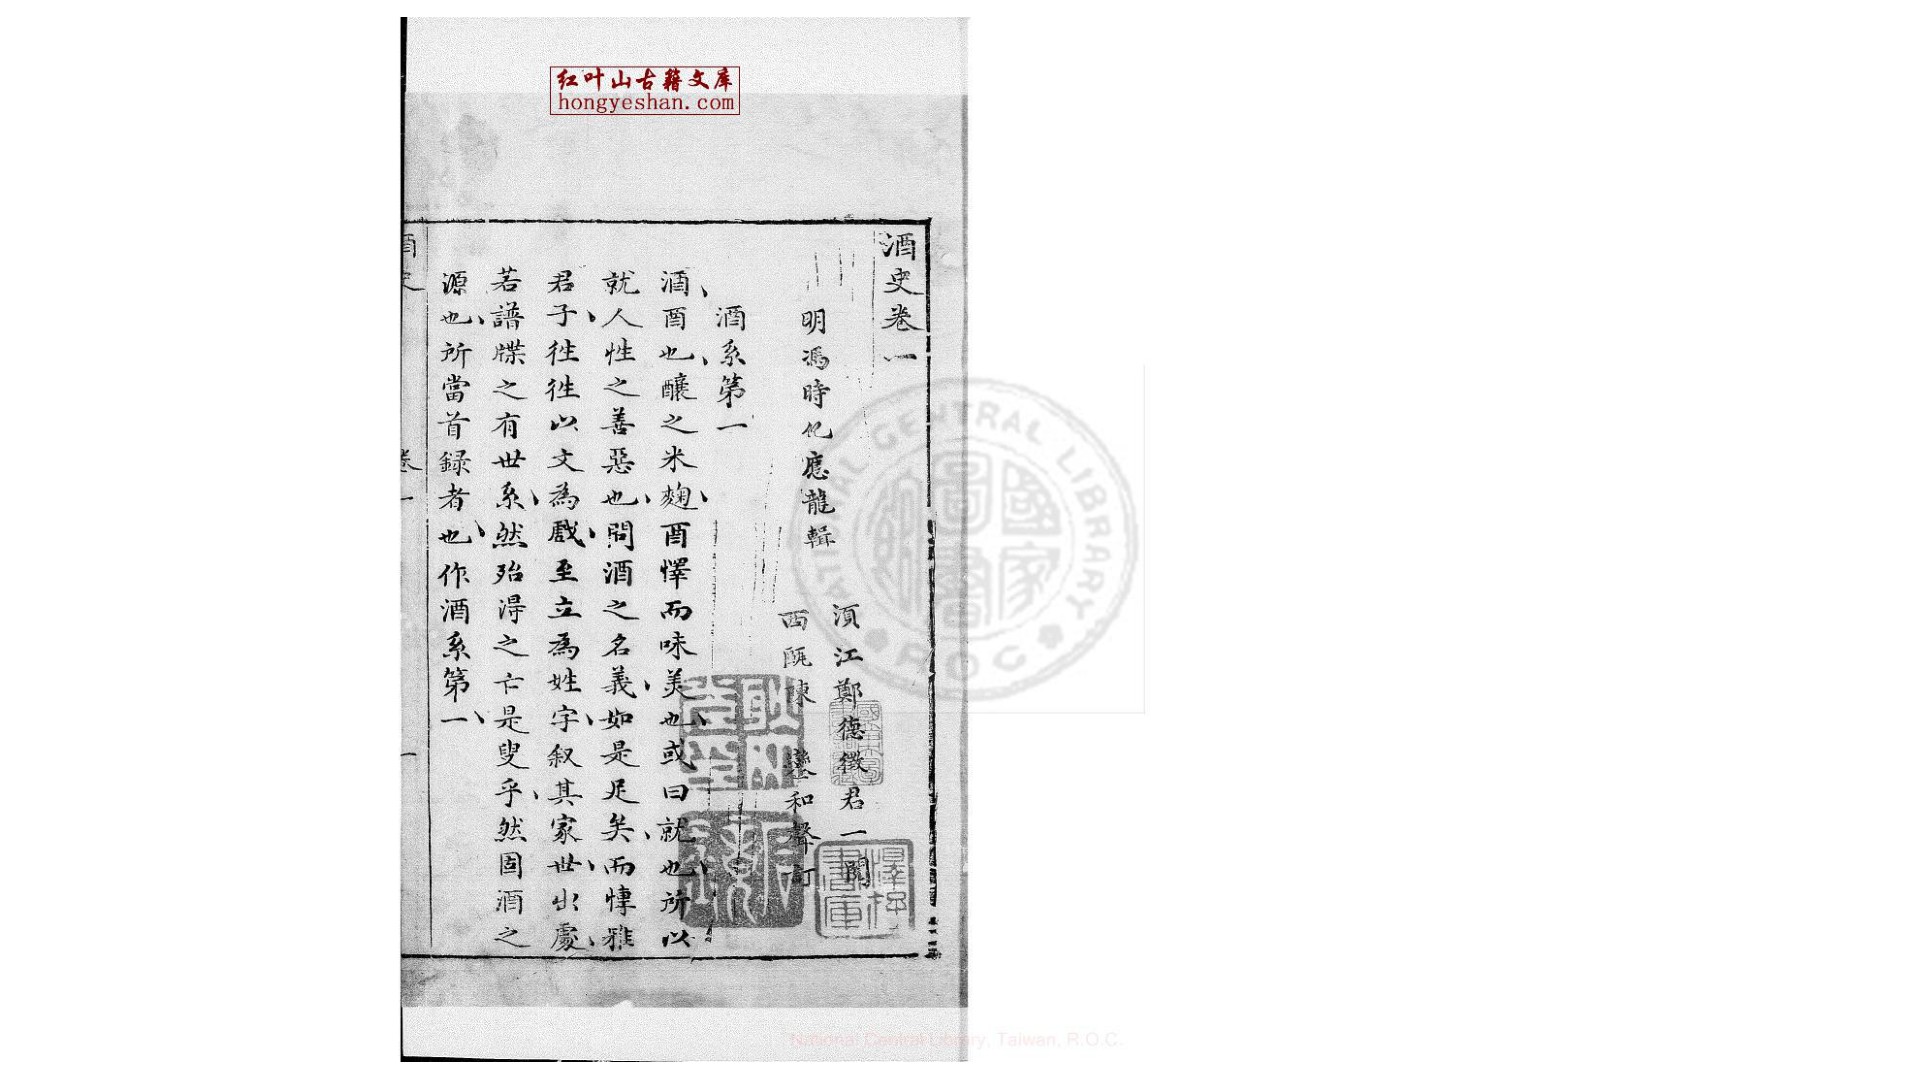 红叶山古籍文库
hongyeshan.com
酒史卷一
明馮時化應龍輯
須江鄭德徵君一閱
西甌陳 鑾和聲訂
酒系第一
酒酉也釀之米麴酉懌而味美也或曰就也所以
就人性之善惡也問酒之名義如是足矣而慱雅
君子徃徃以文為戲至立為姓字叙其家世出處
若譜牒之有世系然殆淂之亡是叟乎然固酒之
源也所當首録者也作酒系第一
酒史
卷一
一
國家圖書館
NATIONAL CENTRAL LIBRARY
ROC
書庫
National Central Library, Taiwan, R.O.C.